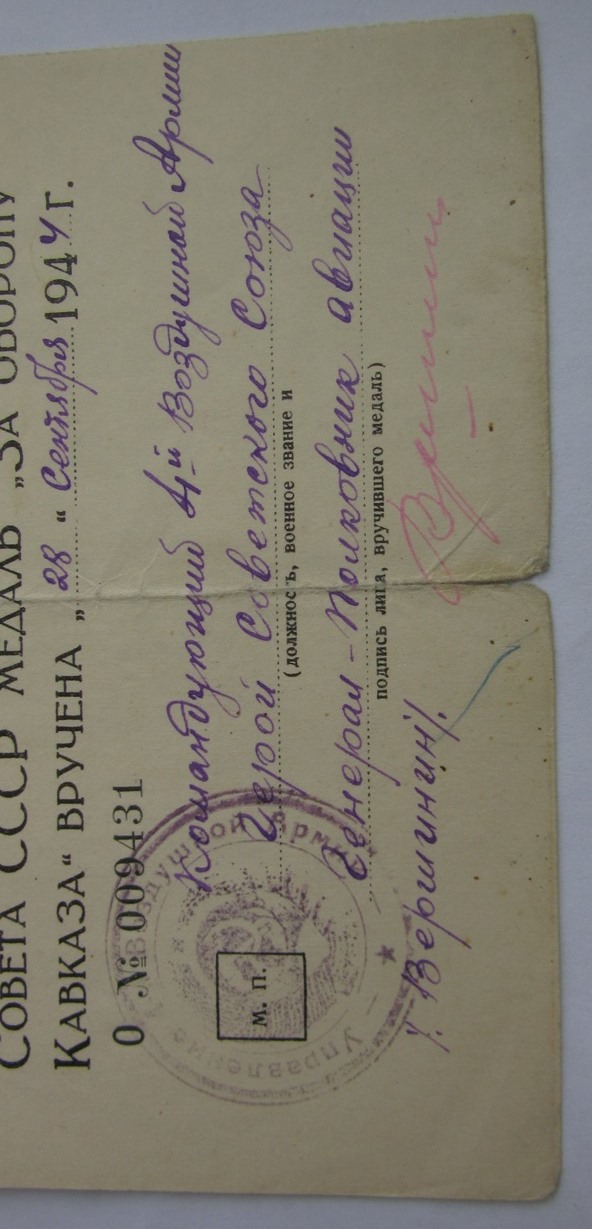 СОВЕТА СССР МЕДАЛЬ „ЗА ОБОРОНУ
КАВКАЗА“ ВРУЧЕНА „28“ Сентября 1944 г.
О № 009431
Командующий 4-й Воздушной Армии
Герой Советского Союза
(должность, военное звание и
Генерал-Полковник авиации
подпись лица, вручившего медаль)
/Вершинин/.
М. П.
Управление Воздушной Армии